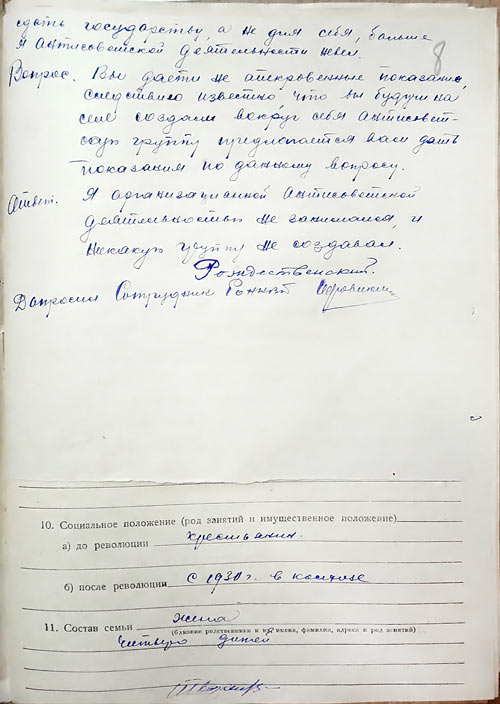 сдать государству, а не для себя, больше
я антисоветской деятельности не вел.
8
Вопрос. Вы даети не аткровенные показания,
следствию известно, что вы будучи на
селе создали вокруг себя антисовет-
скую группу предлогается вам дать
показания по данному вопросу.
Ответ. Я организационной антисоветской
деятельностью не занимался, и
некакую группу не создавал.
Рождественский.
Допросил Сотрудник
10. Социальное положение (род занятий и имущественное положение)
а) до революции крестьянин.
б) после революции с 1930 г. в колхозе
11. Состав семьи жена
(близкие родственники и их имена, фамилия, адреса и род занятий)
четверо дитей